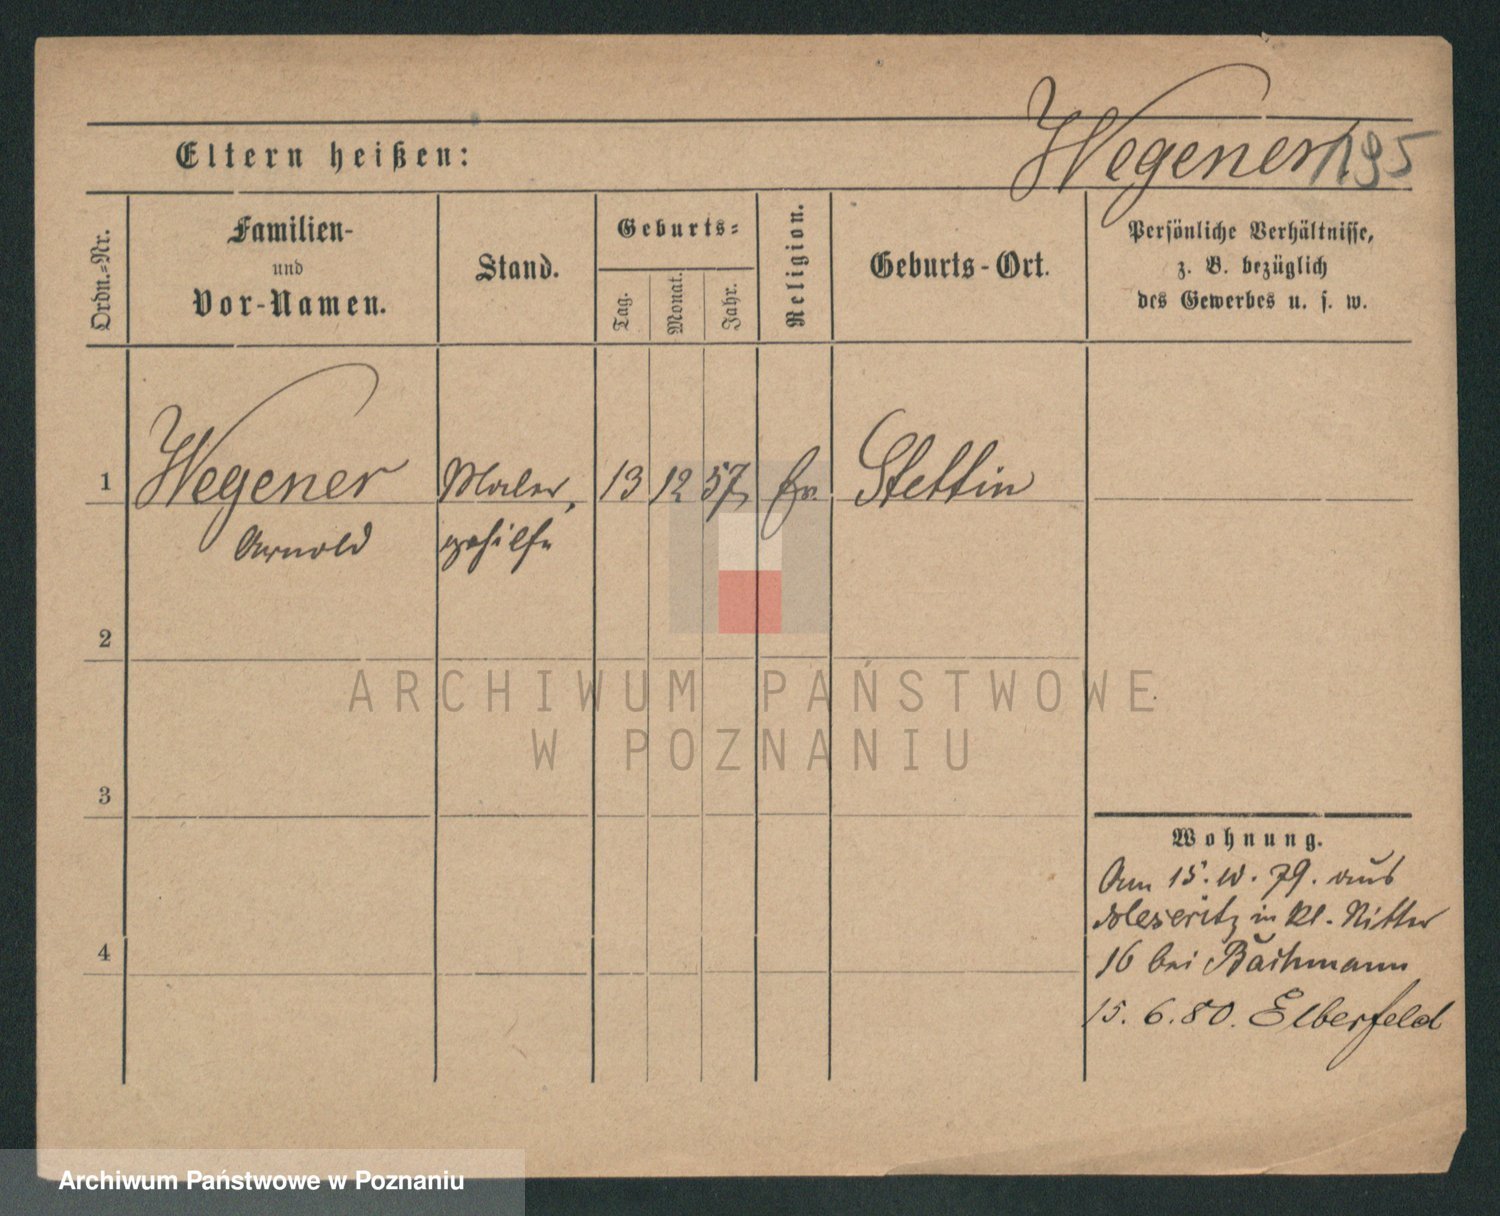 Wegener 195
Eltern heißen:
Ordn.-Nr.
Familien-
und
Vor-Namen.
Stand.
Geburts-
Tag.
Monat.
Jahr.
Religion.
Geburts-Ort.
Persönliche Verhältnisse,
z. B. bezüglich
des Gewerbes u. s. w.
1 Wegener Maler, 13 12 57 Ev. Stettin
Arnold gehilfe
2
3
4
Wohnung.
Am 15. 10. 79. aus
Meseritz in Kl. Ritter
16 bei Bachmann
15. 6. 80. Elberfeld
ARCHIWUM PAŃSTWOWE
W POZNANIU
Archiwum Państwowe w Poznaniu